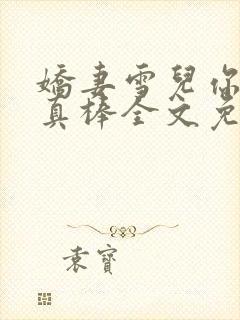 嬌妻雪兒你
真棒全文免
袁寶